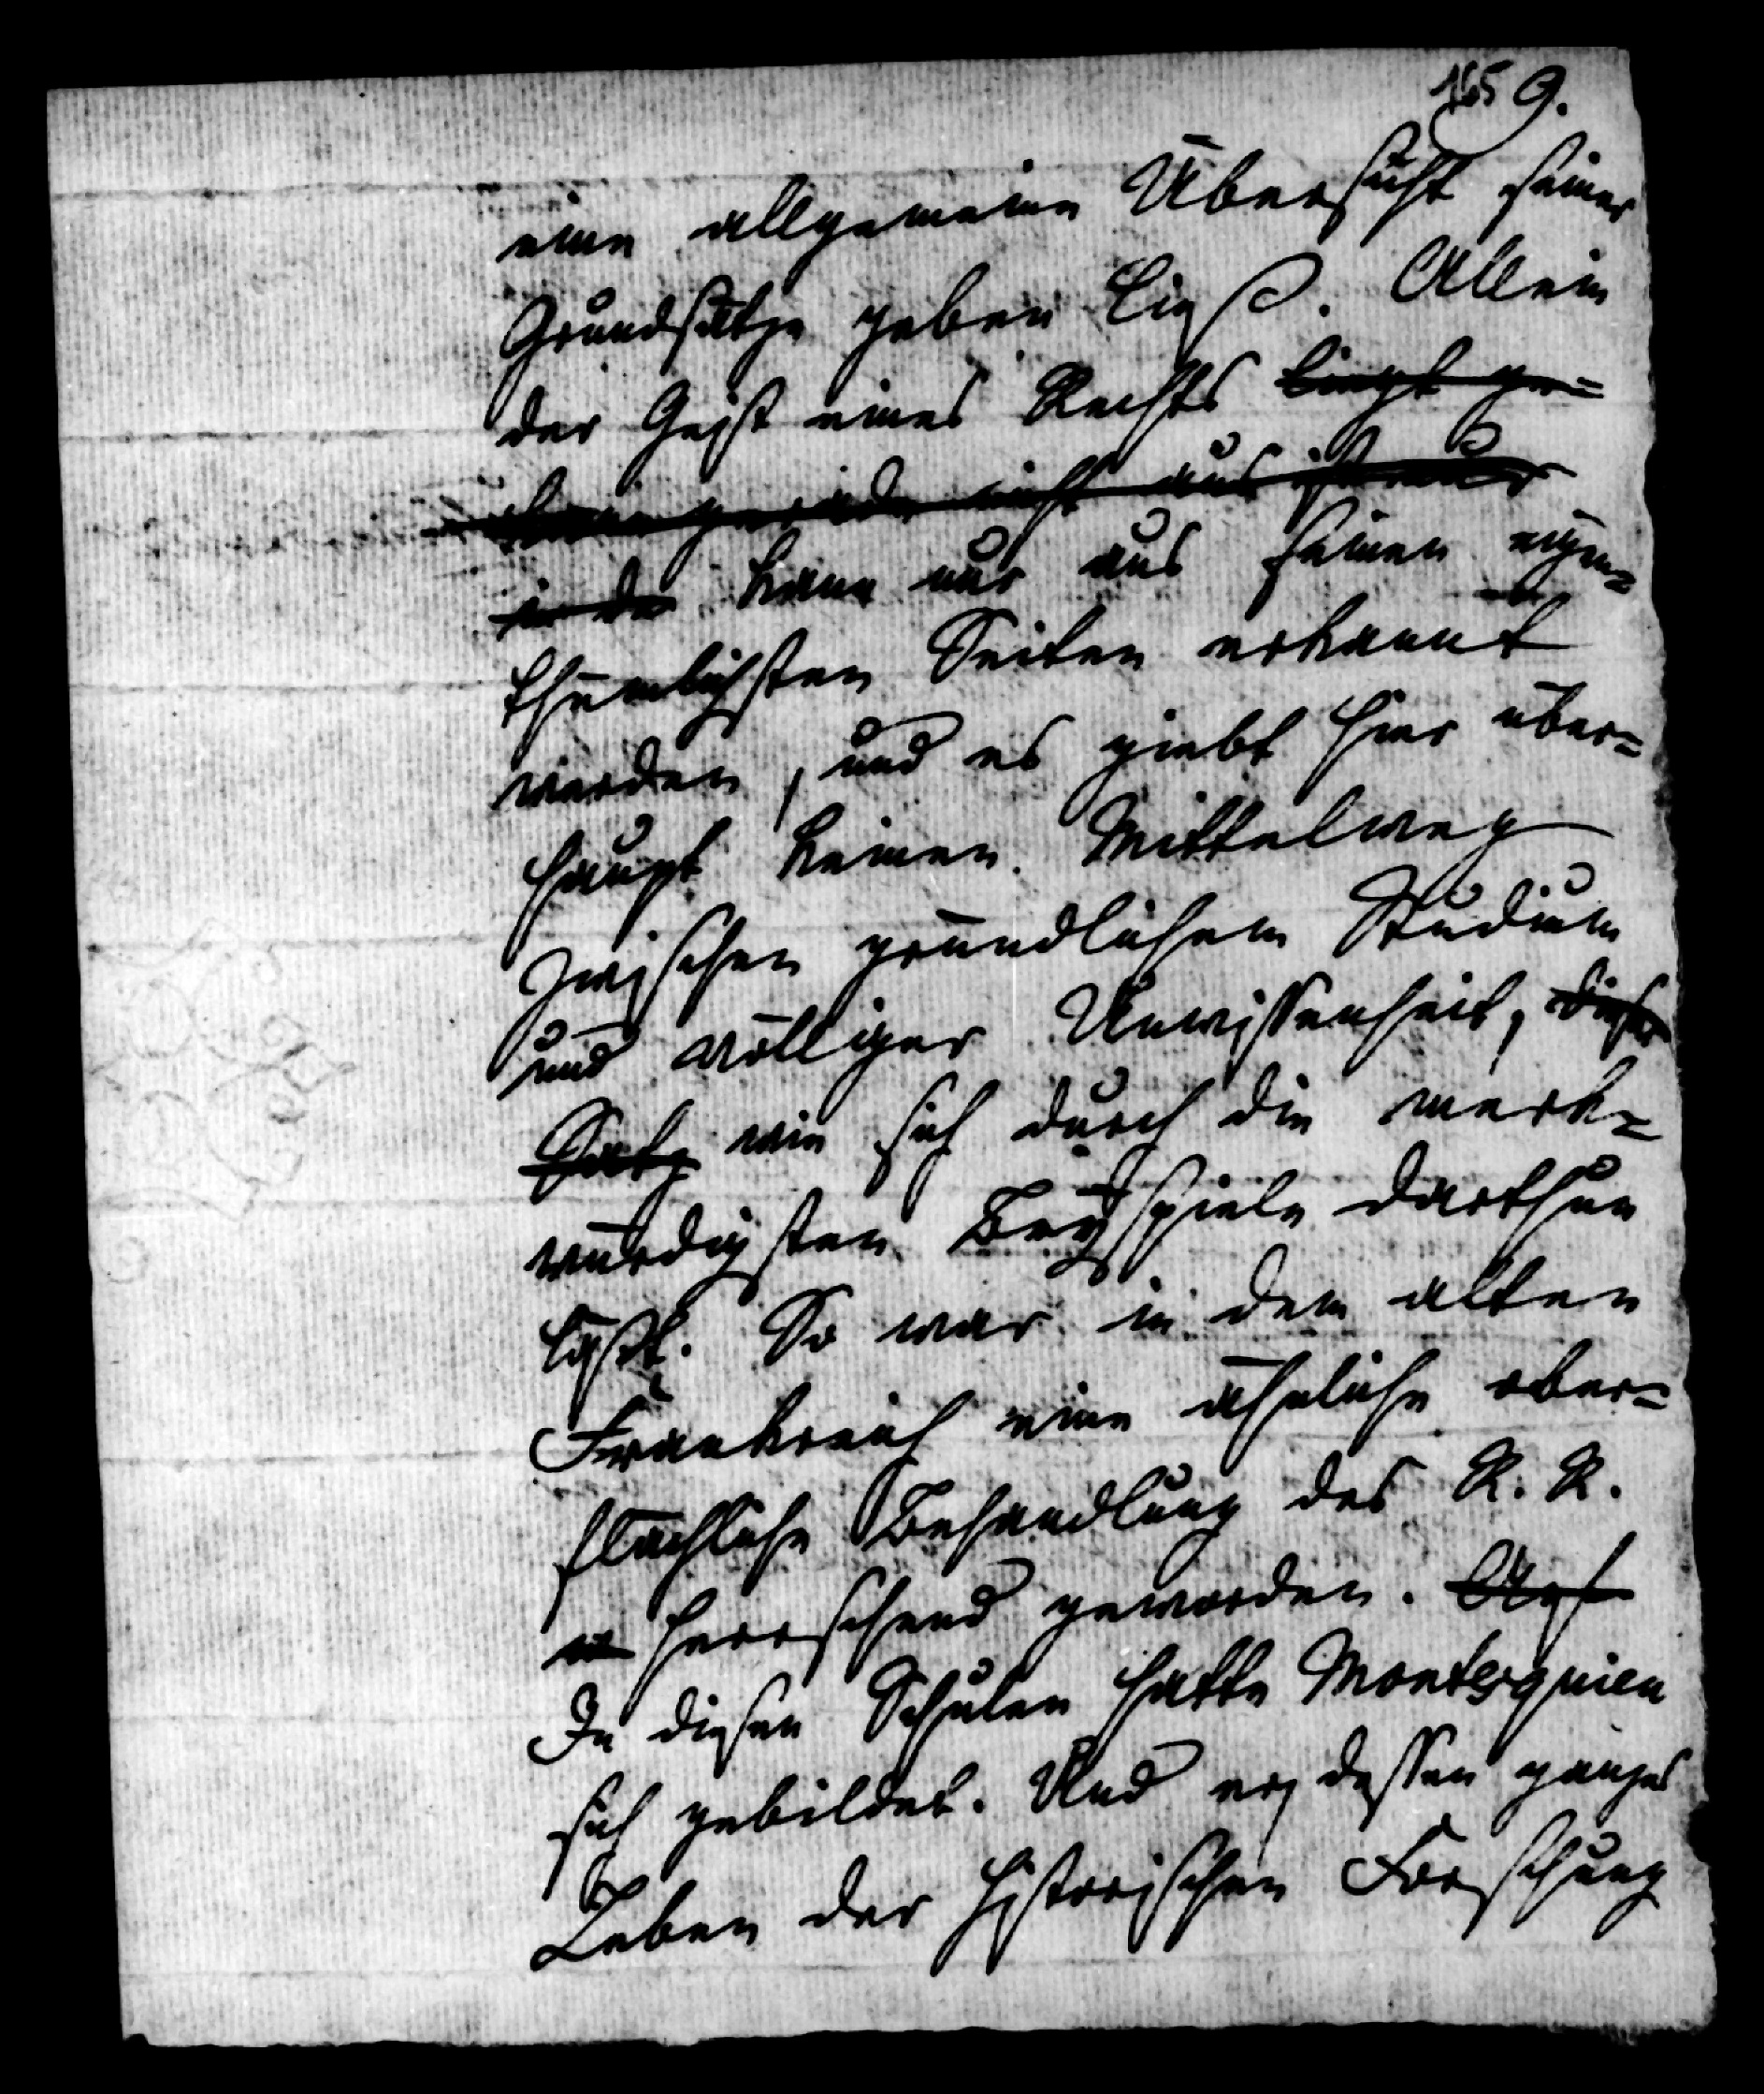 165 9.
eine allgemeine Übersicht seiner
Grundsätze geben ließe. Allein
der Geist eines Rechts liegt ge=
gerade nicht aus
in der kann nur aus seinen eigen=
thümlichsten Seiten erkannt
werden, und es giebt hier über=
haupt keinen Mittelweg
zwischen gründlichem Studium
und völliger Unwissenheit, dieser
Satz wie sich durch die merk=
würdigsten Beyspiele darthun
läßt. So war in dem alten
Frankreich eine ähnliche ober=
flächliche Behandlung des R. R.
herrschend geworden.
In diesen Schulen hatte Montesquieu
sich gebildet. Und er, dessen ganzes
Leben der historischen Forschung